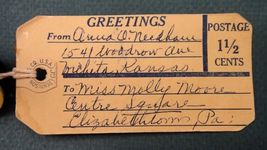 GREETINGS
From Anna O. Needham
1541 Woodrow Ave
Wichita, Kansas.
To Miss Molly Moore
Centre Square
Elizabethtown, Pa.
POSTAGE
1 1/2
CENTS